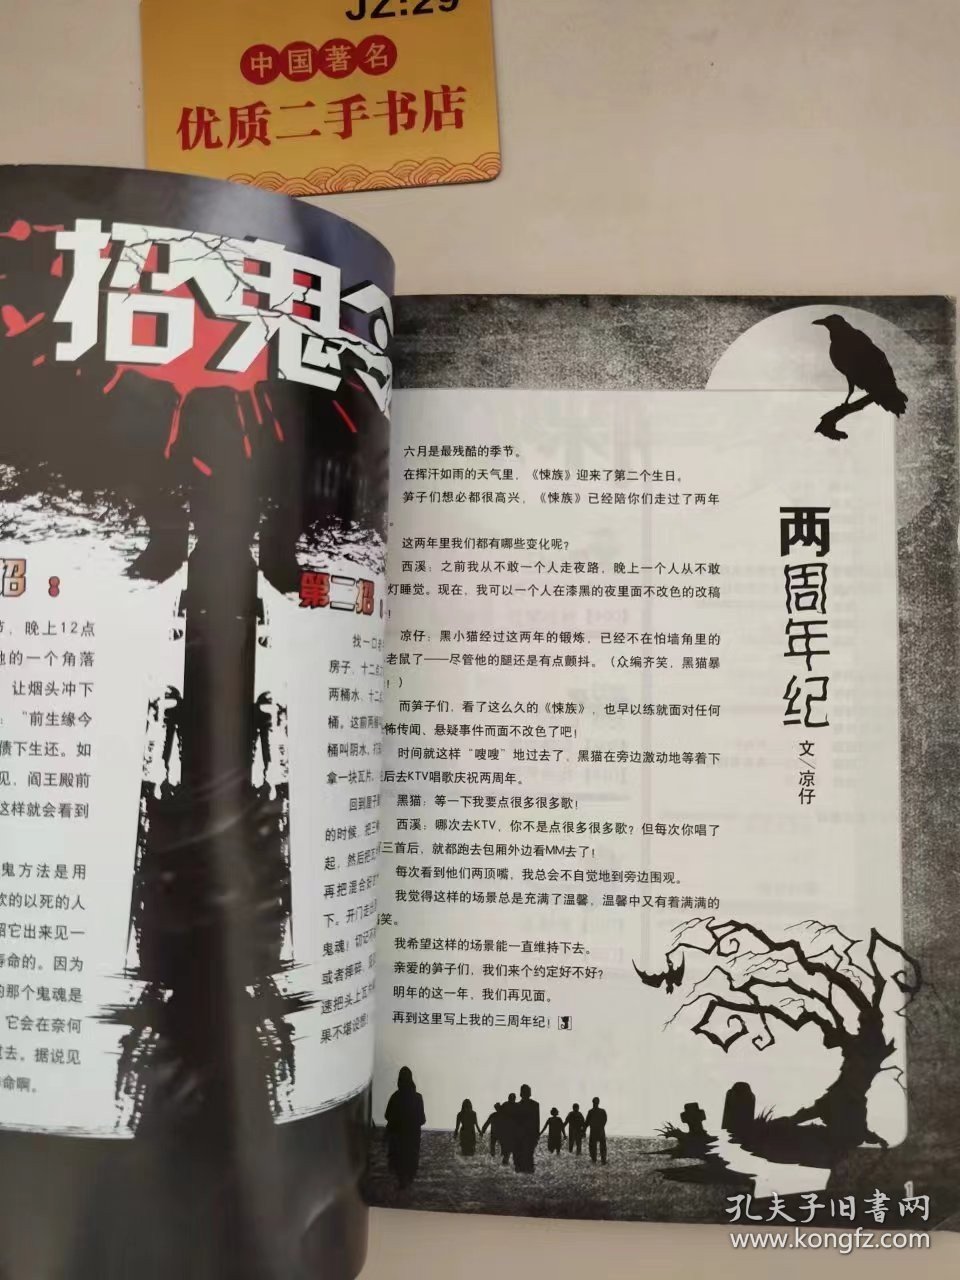 JZ:29
中国著名
优质二手书店
招鬼
招：
节，晚上12点
他的一个角落
让烟头冲下
：“前生缘今
债下生还。如
见，阎王殿前
这样就会看到
鬼方法是用
欢的以死的人
招它出来见一
寿命的。因为
的那个鬼魂是
它会在奈何
过去。据说见
命啊。
第二招：
找一口
房子，十二点
两桶水，十二点
桶。这前两
桶叫阴水、打
拿一块瓦片，
回到屋子
的时候，把三
起，然后把
再把混合
下。开门走出
鬼魂！切记不
或者摔碎，
速把头上瓦
果不堪设想！
两周年纪
文╲凉仔
六月是最残酷的季节。
在挥汗如雨的天气里，《悚族》迎来了第二个生日。
笋子们想必都很高兴，《悚族》已经陪你们走过了两年
。
这两年里我们都有哪些变化呢？
西溪：之前我从不敢一个人走夜路，晚上一个人从不敢
灯睡觉。现在，我可以一个人在漆黑的夜里面不改色的改稿
！
凉仔：黑小猫经过这两年的锻炼，已经不在怕墙角里的
老鼠了——尽管他的腿还是有点颤抖。（众编齐笑，黑猫暴
！）
而笋子们，看了这么久的《悚族》，也早以练就面对任何
怖传闻、悬疑事件而面不改色了吧！
时间就这样“嗖嗖”地过去了，黑猫在旁边激动地等着下
后去KTV唱歌庆祝两周年。
黑猫：等一下我要点很多很多歌！
西溪：哪次去KTV，你不是点很多很多歌？但每次你唱了
三首后，就都跑去包厢外边看MM去了！
每次看到他们两顶嘴，我总会不自觉地到旁边围观。
我觉得这样的场景总是充满了温馨，温馨中又有着满满的
笑。
我希望这样的场景能一直维持下去。
亲爱的笋子们，我们来个约定好不好？
明年的这一年，我们再见面。
再到这里写上我的三周年纪！
1
孔夫子旧书网
www.kongfz.com